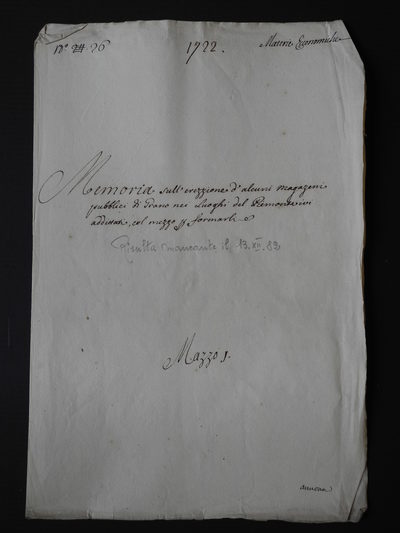 N.° 26
1722.
Materie Economiche
Memoria sull'erezzione d'alcuni magazeni
pubblici di Grano nei Luoghi del Piemonte ivi
additati, col mezzo p formarli
Risulta mancante il 13.XII.83
Mazzo 1.